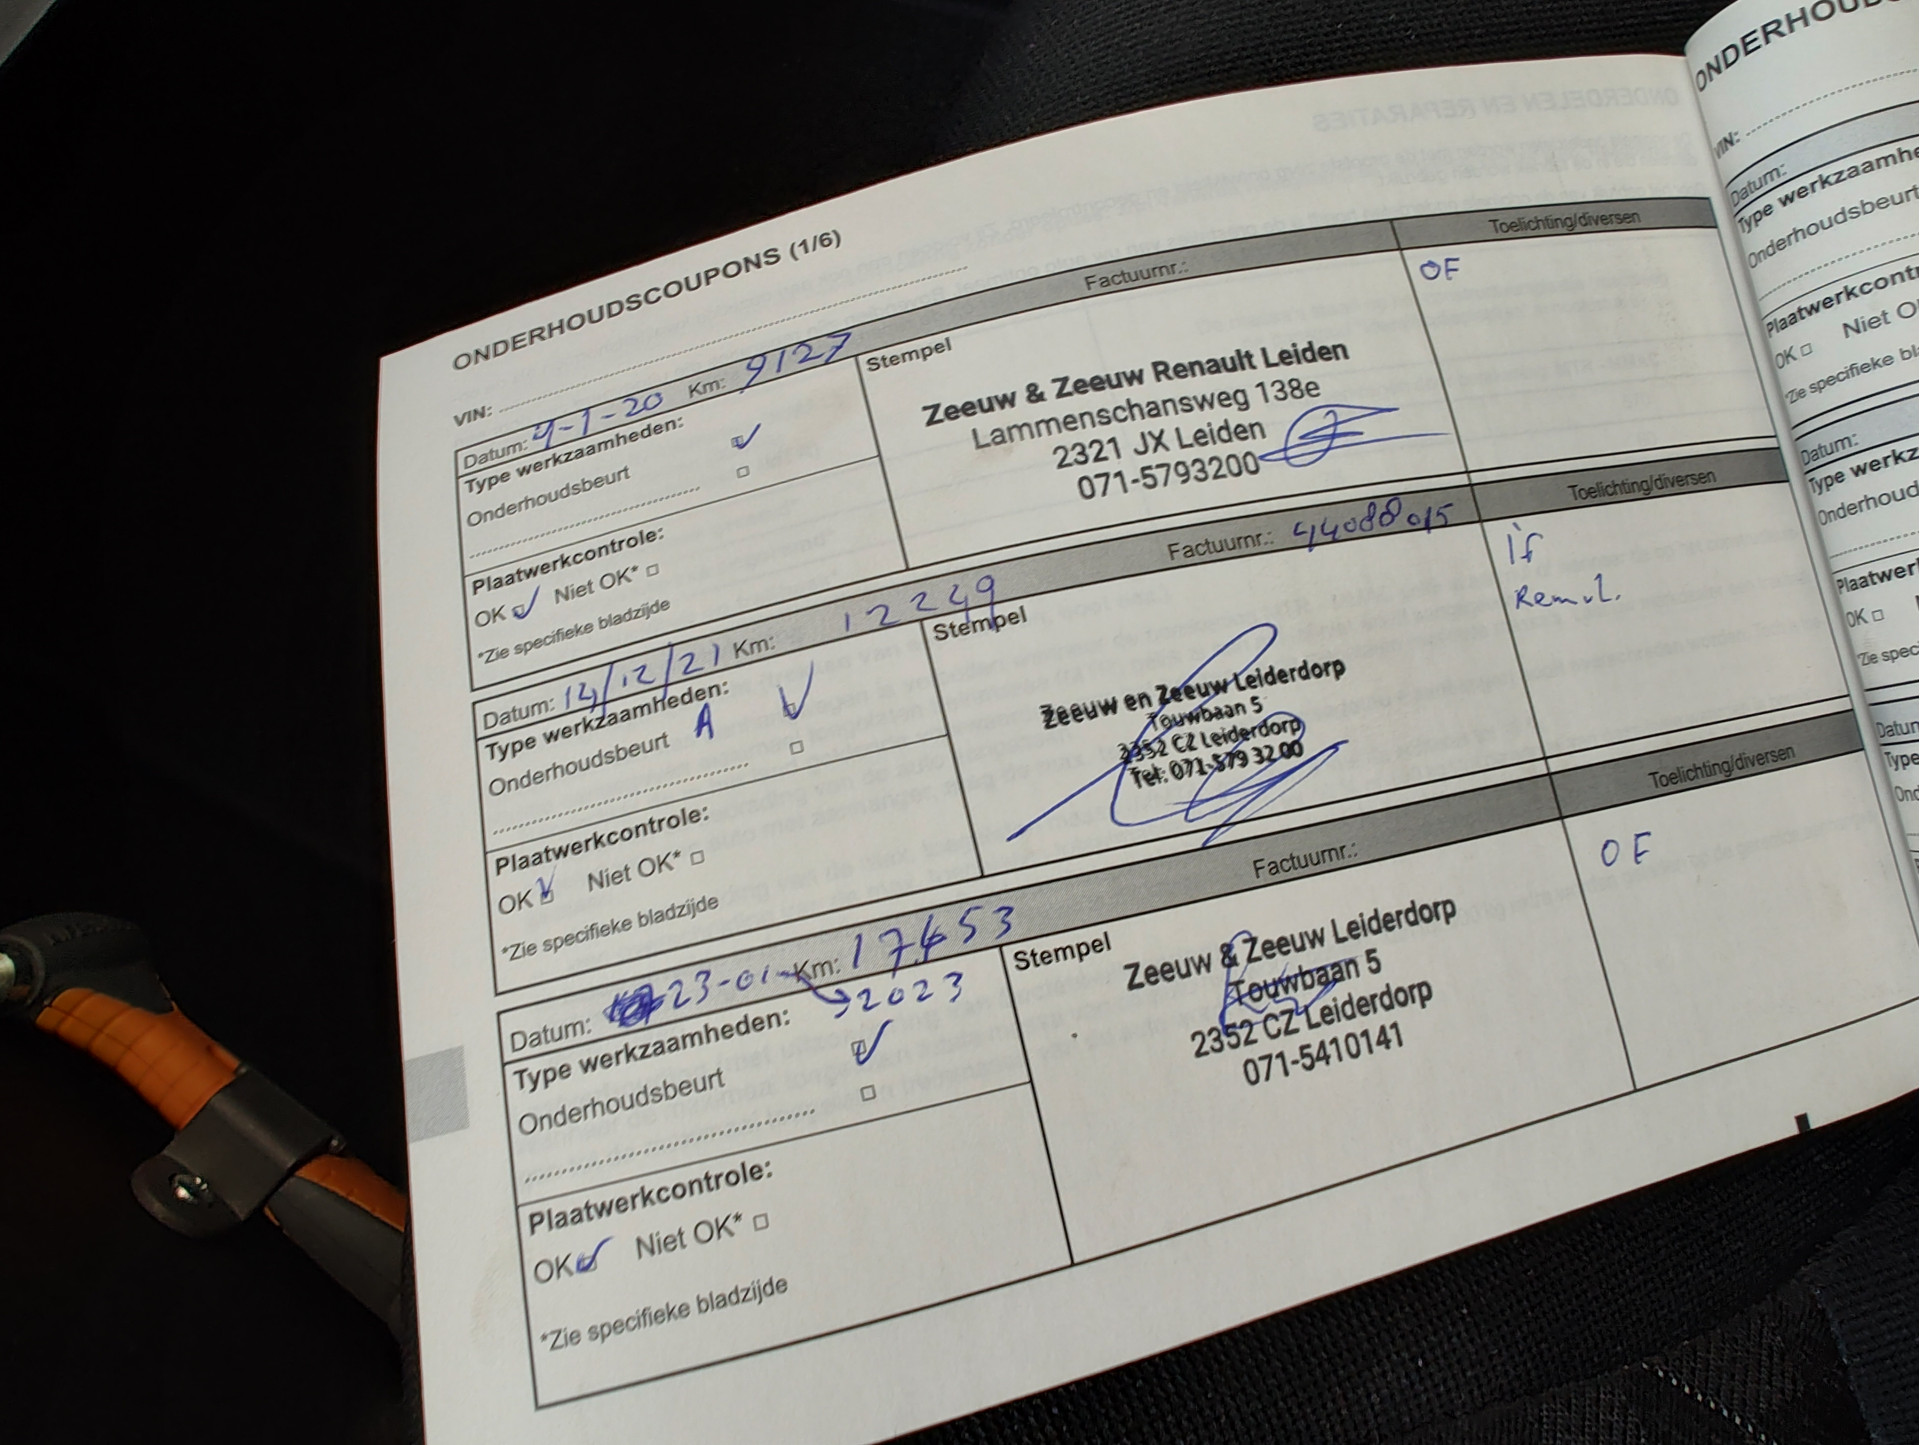 ONDERHOUDSCOUPONS (1/6)
VIN:
Datum: 9-1-20 Km: 9127 Factuurnr.: Toelichting/diversen
Type werkzaamheden:
Onderhoudsbeurt
Plaatwerkcontrole:
OK Niet OK*
*Zie specifieke bladzijde
Stempel
Zeeuw & Zeeuw Renault Leiden
Lammenschansweg 138e
2321 JX Leiden
071-5793200
OF
Datum: 14/12/21 Km: 12249 Factuurnr.: Toelichting/diversen
Type werkzaamheden:
Onderhoudsbeurt A
Plaatwerkcontrole:
OK Niet OK*
*Zie specifieke bladzijde
Stempel
Zeeuw en Zeeuw Leiderdorp
Touwbaan 5
2352 CZ Leiderdorp
Tel: 071-579 32 00
Datum: 23-01- Km: 17453 Factuurnr.: Toelichting/diversen
2023
Type werkzaamheden:
Onderhoudsbeurt
Plaatwerkcontrole:
OK Niet OK*
*Zie specifieke bladzijde
Stempel
Zeeuw & Zeeuw Leiderdorp
Touwbaan 5
2352 CZ Leiderdorp
071-5410141
OF
VIN:
Datum:
Plaatwerkcontr
OK
Niet
Datum:
OK